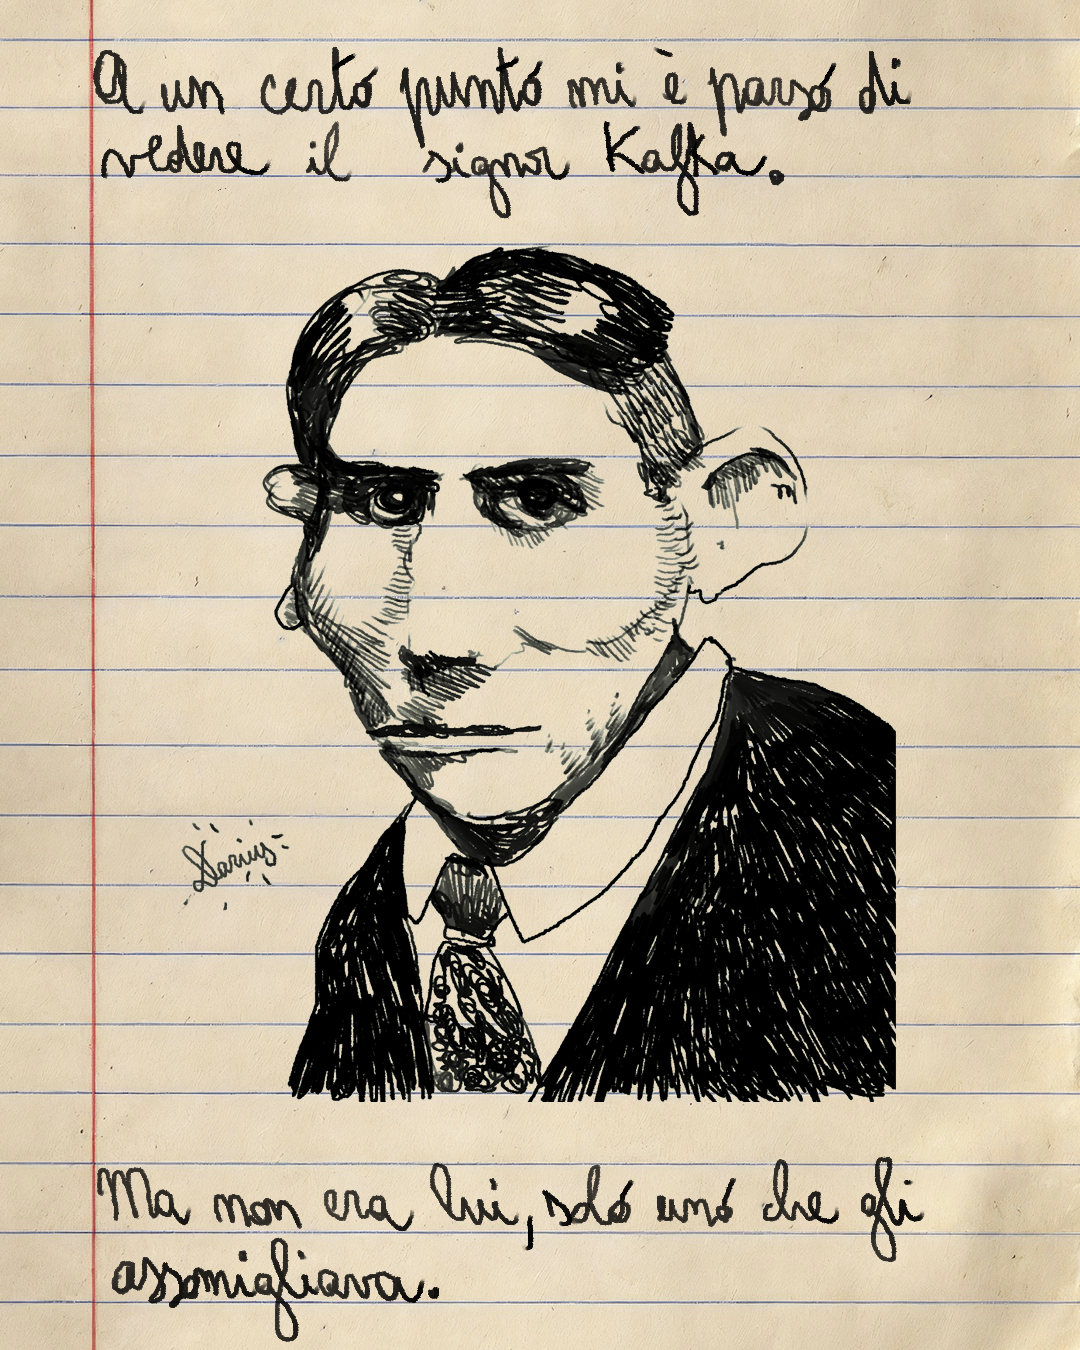 A un certo punto mi è parso di
vedere il signor Kafka.
Darius
Ma non era lui, solo uno che gli
assomigliava.